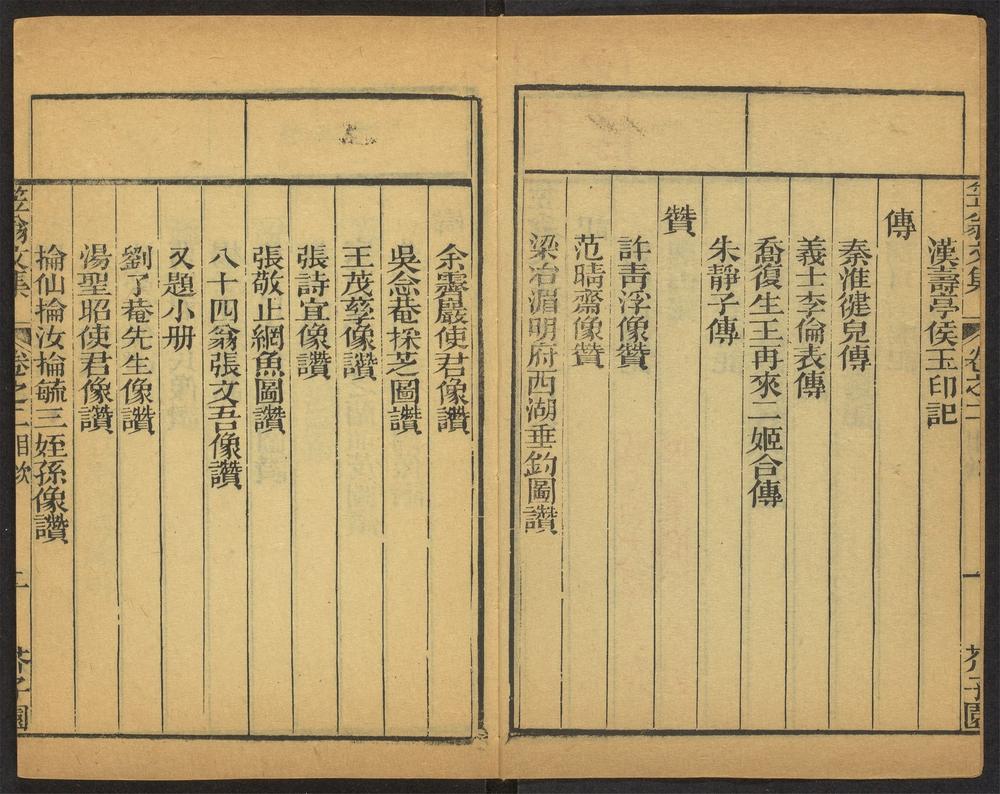 笠翁文集 卷之二 一 芥子園
漢壽亭侯玉印記
傳
秦淮徤兒傳
義士李倫表傳
喬復生王再來二姬合傳
朱靜子傳
贊
許青浮像贊
范晴齋像贊
梁冶湄明府西湖垂釣圖讚
余霽巖使君像讚
吳念菴採芝圖讚
王茂㜫像讚
張詩宜像讚
張敬止網魚圖讚
八十四翁張文吾像讚
又題小册
劉了菴先生像讚
湯聖昭使君像讚
掄仙掄汝掄毓三姪孫像讚
笠翁文集 卷之二目次 二 芥子園